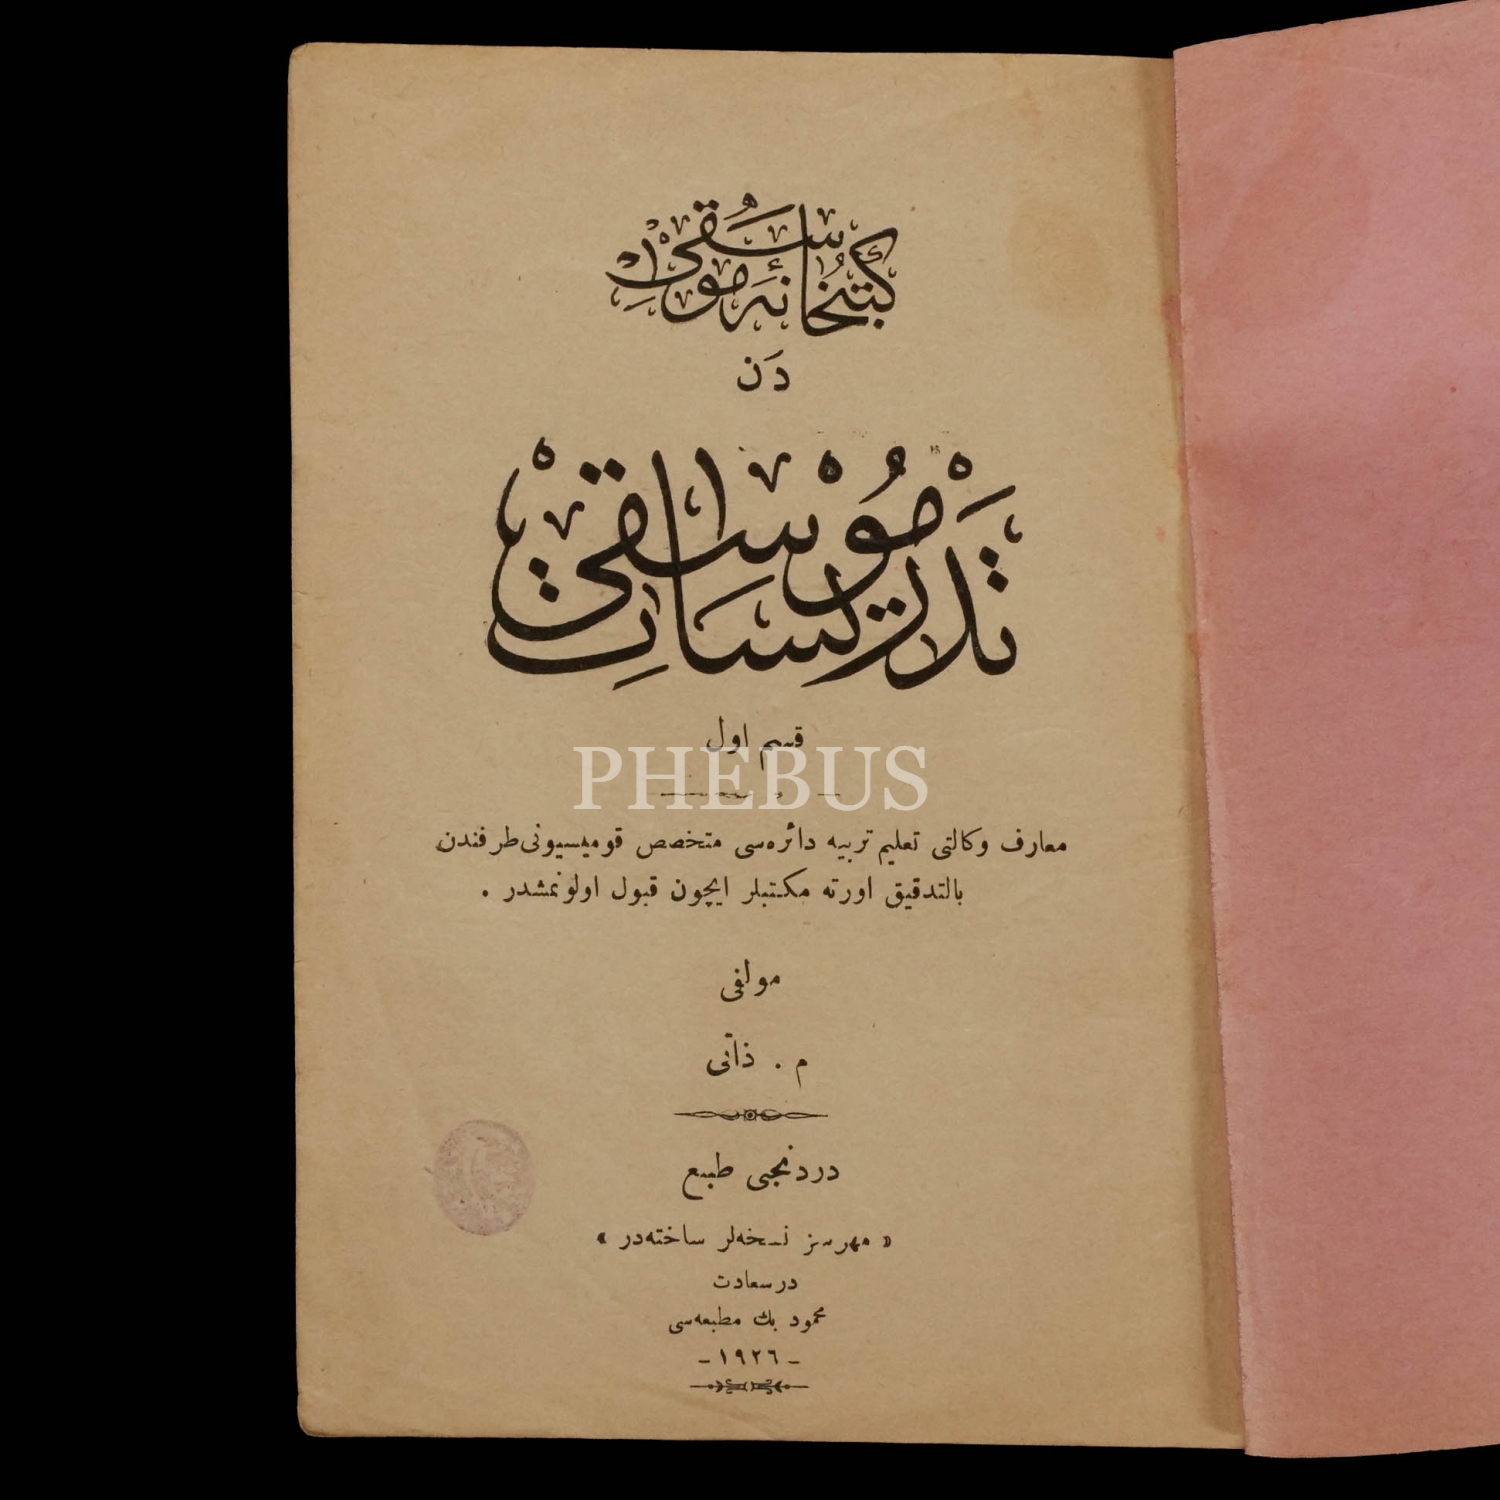 كتبخانهٔ موسقی
دَن
تدريسات موسيقی
قسم اول
PHEBUS
معارف وكالتی تعليم تربيه دائره‌سی متخصص قوميسيونی طرفندن
بالتدقيق اورته مكتبلر ايچون قبول اولونمشدر .
مولفی
م . ذاتی
دردنجی طبع
« مهرسز نسخه‌لر ساخته‌در »
درسعادت
محمود بك مطبعه‌سی
- ١٩٢٦ -